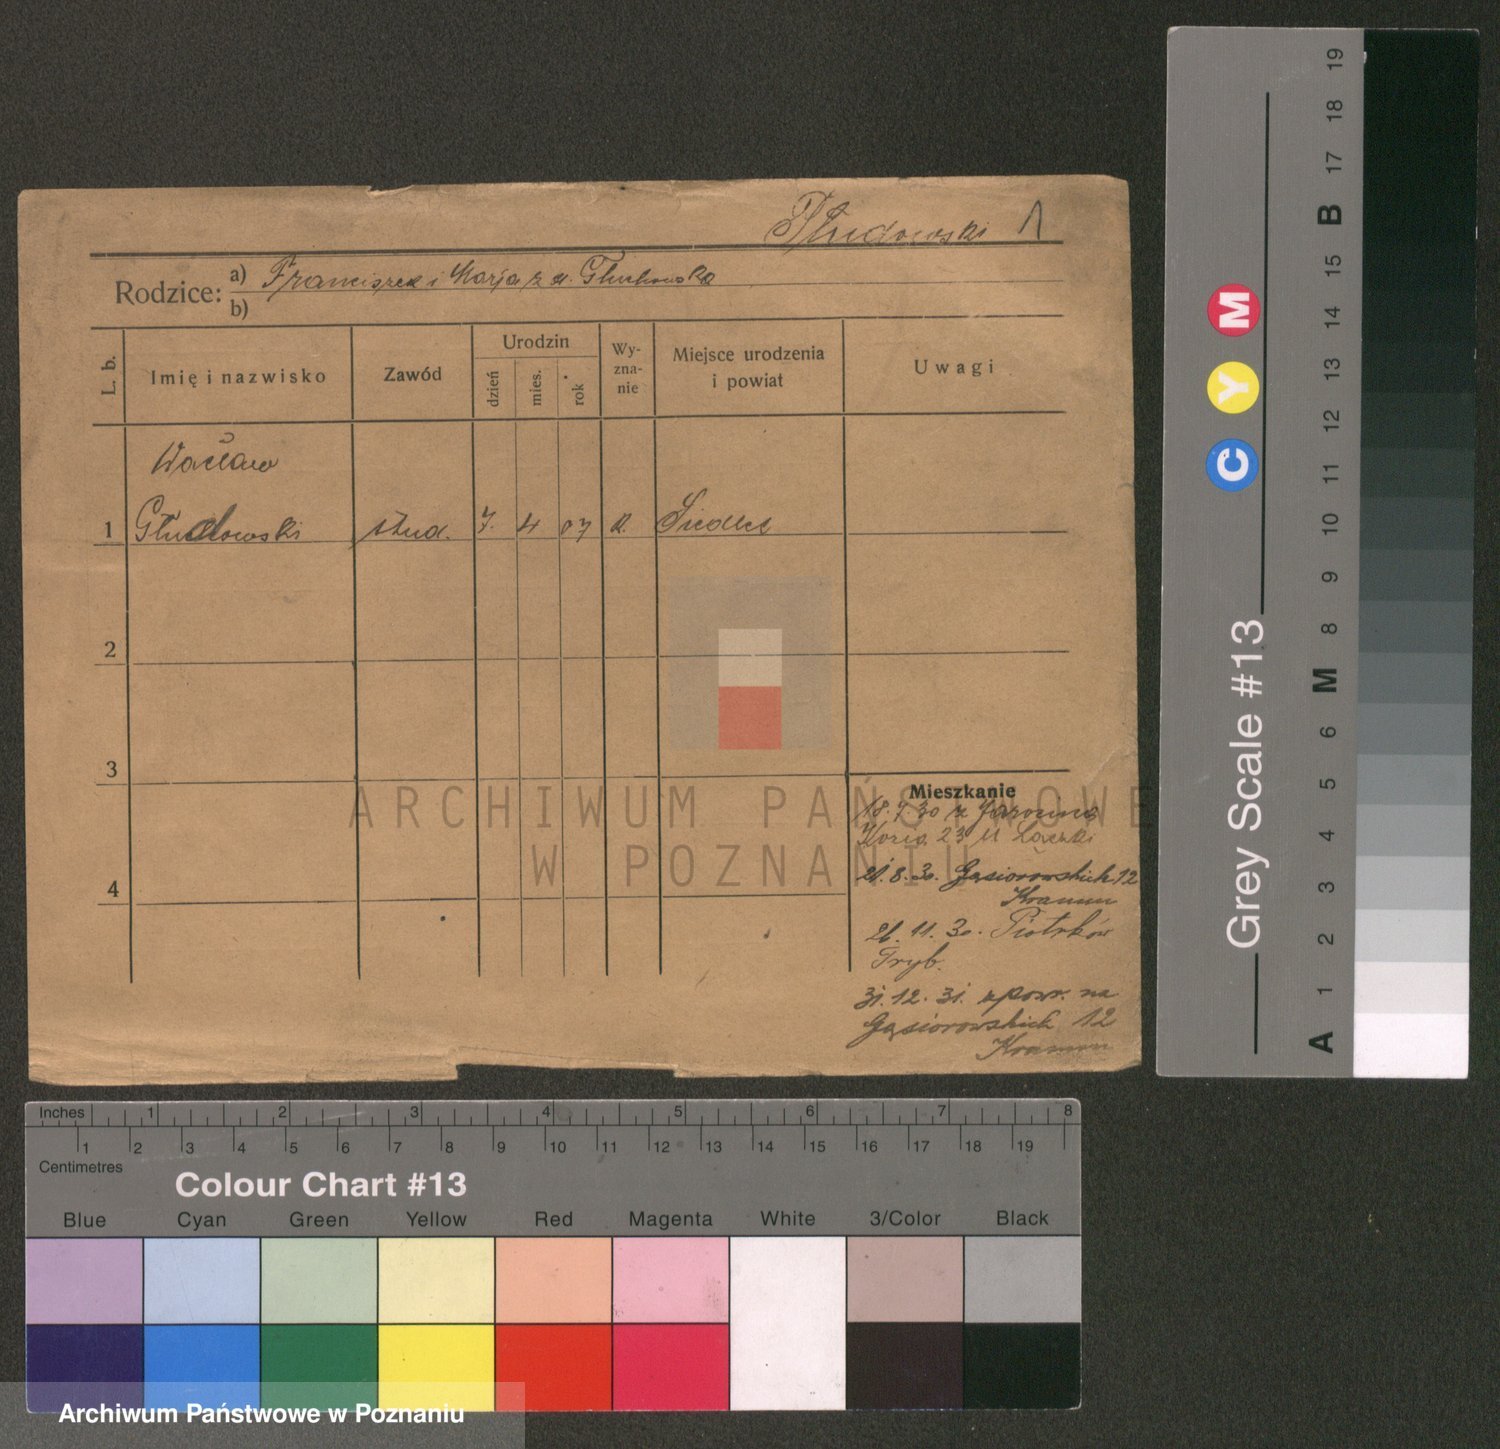 Płudowski 1
Rodzice: a) Franciszek i Marja z d. Głuchowska
b)
L. b.
Imię i nazwisko
Zawód
Urodzin
dzień
mies.
rok
Wy-
zna-
nie
Miejsce urodzenia
i powiat
Uwagi
Wacław
1 Głudowski stud. 7. 4 07 k. Siedlec
2
3
4
Mieszkanie
18.7.30 z Jarocina
23
21.8.30. Gąsiorowskich 12
Kramm
26.11.30. Piotrków
Tryb.
31.12.31. z powr. na
Gąsiorowskich 12
Kramm
ARCHIWUM PAŃSTWOWE
W POZNANIU
Grey Scale #13
C Y M
A 1 2 3 4 5 6 M 8 9 10 11 12 13 14 15 B 17 18 19
Inches 1 2 3 4 5 6 7 8
1 2 3 4 5 6 7 8 9 10 11 12 13 14 15 16 17 18 19
Centimetres
Colour Chart #13
Blue Cyan Green Yellow Red Magenta White 3/Color Black
Archiwum Państwowe w Poznaniu